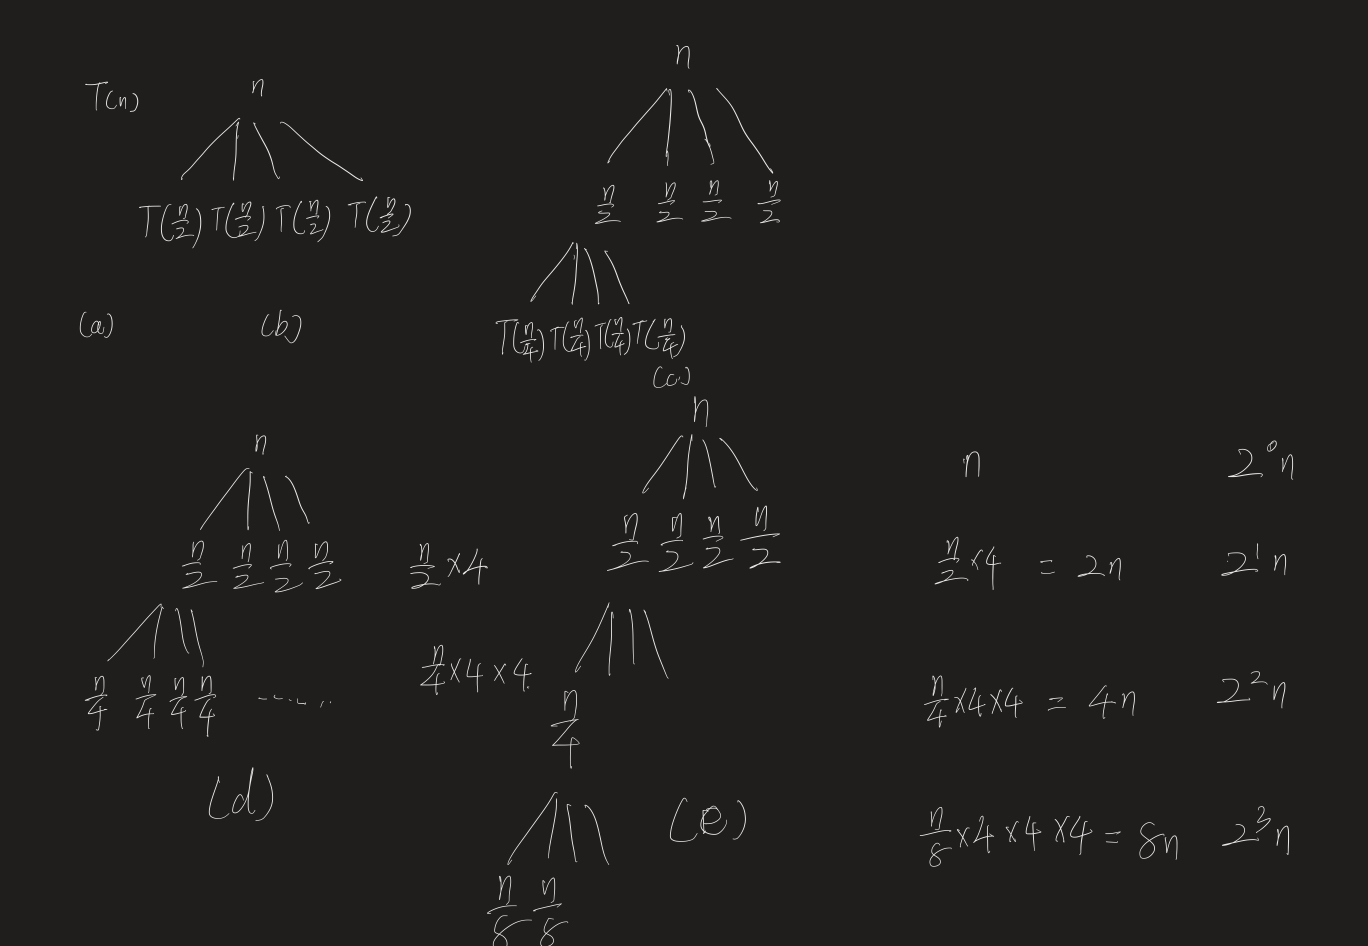 T(n)
n
T(n/2) T(n/2) T(n/2) T(n/2)
(a)
(b)
n
n/2 n/2 n/2 n/2
T(n/4) T(n/4) T(n/4) T(n/4)
(c)
n
n/2 n/2 n/2 n/2
n/2 ×4
n/4 n/4 n/4 n/4 ......
n/4 ×4×4
(d)
n
n/2 n/2 n/2 n/2
n/4
n/8 n/8
(e)
n 2⁰n
n/2 ×4 = 2n 2¹n
n/4 ×4×4 = 4n 2²n
n/8 ×4×4×4 = 8n 2³n